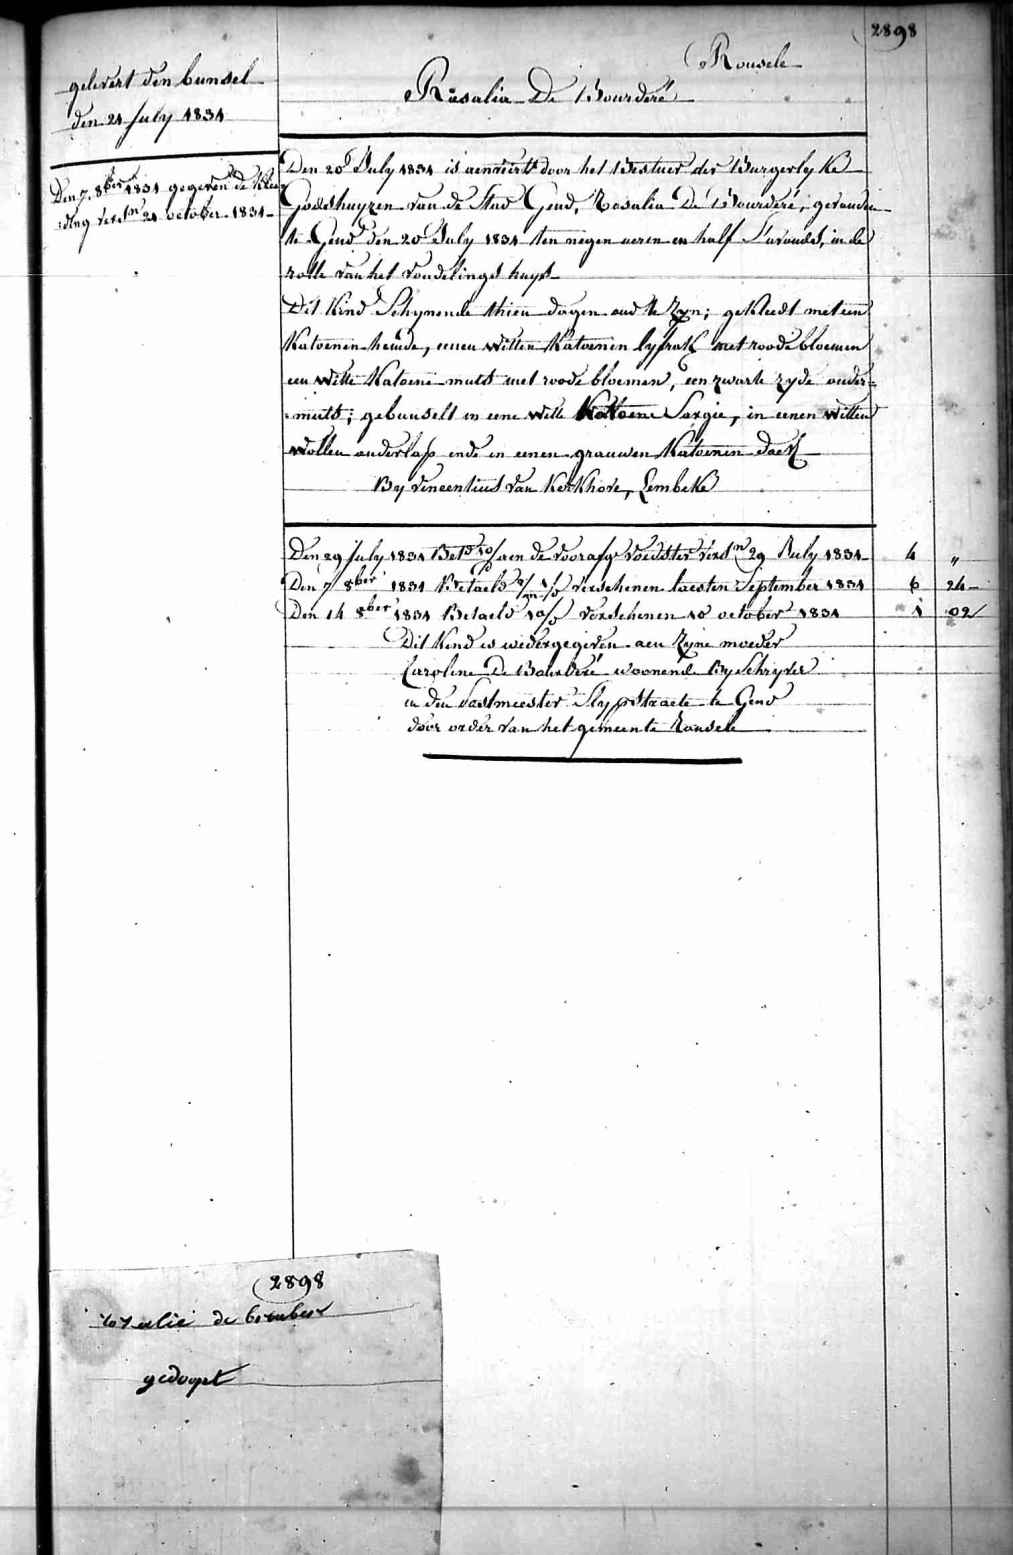 2898
Rousele
Rosalia De Bourderé
gelevert den bunsel
den 21 July 1831
Den 7. 8ber 1831 gegeven de Klee=
=ding versn 21 october 1831-
Den 20 July 1831 is aenveert door het Bestuer der Burgerlyke
Godshuyzen van de Stad Gend, Rosalia De Bourderé, gevonden
te Gend den 20 July 1831 ten negen ueren en half s'avonds, in de
rolle van het vondelings huys-
Dit Kind Schynende thien dagen oud te Zyn; gekleedt met een
Katoenen hemde, eenen witten Katoenen lyfrok met roode bloemen
een witte Katoene muts met roode bloemen, een zwarte zyde onder=
=muts; gebunselt in eene witte Kattoene Sargie, in eenen witten
wollen onderlap ende in eenen grauwen Katoenen doek
By vincentius van Kerkhove, Lembeke
Den 29 July 1831 aen de voorafge voedster 29 July 1831- 4 "
Den 7 8ber 1831 Betaeld verschenen laesten September 1831 6 24-
Den 14 8ber 1831 Betaeld verschenen 10 october 1831 1 02/
Dit Kind is wedergegeven aen Zyne moeder
Caroline De Bourderé woonende By Schryver
in den Slypstraete te Gend
door order van het gemeente Rousele
2898
rosalie de
gedoopt